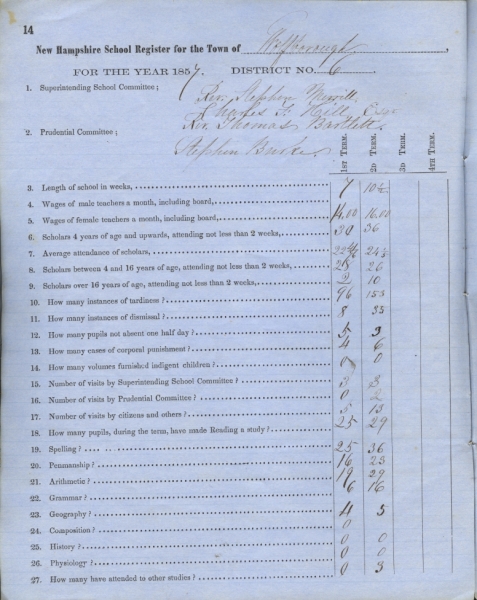 14
New Hampshire School Register for the Town of Wolfborough,
FOR THE YEAR 1857, DISTRICT NO. 6
1. Superintending School Committee; Rev. Stephen Merrill.
Charles F. Esqr
Rev. Thomas Bartlett.
2. Prudential Committee;
Stephen Burke.
1ST TERM. 2D TERM. 3D TERM. 4TH TERM.
3. Length of school in weeks, 7 10½
4. Wages of male teachers a month, including board,
5. Wages of female teachers a month, including board, 14.00 16.00
6. Scholars 4 years of age and upwards, attending not less than 2 weeks, 30 36
7. Average attendance of scholars,
8. Scholars between 4 and 16 years of age, attending not less than 2 weeks, 28 26
9. Scholars over 16 years of age, attending not less than 2 weeks, 2 10
10. How many instances of tardiness? 96 155
11. How many instances of dismissal? 8 35
12. How many pupils not absent one half day? 5 3
13. How many cases of corporal punishment? 4 6
14. How many volumes furnished indigent children? 0 0
15. Number of visits by Superintending School Committee? 3 3
16. Number of visits by Prudential Committee? 0 2
17. Number of visits by citizens and others? 5 13
18. How many pupils, during the term, have made Reading a study? 25 29
19. Spelling? 25 36
20. Penmanship? 16 23
21. Arithmetic? 19 29
22. Grammar? 6 16
23. Geography? 4 5
24. Composition? 0
25. History? 0 0
26. Physiology? 0 0
27. How many have attended to other studies? 0 3